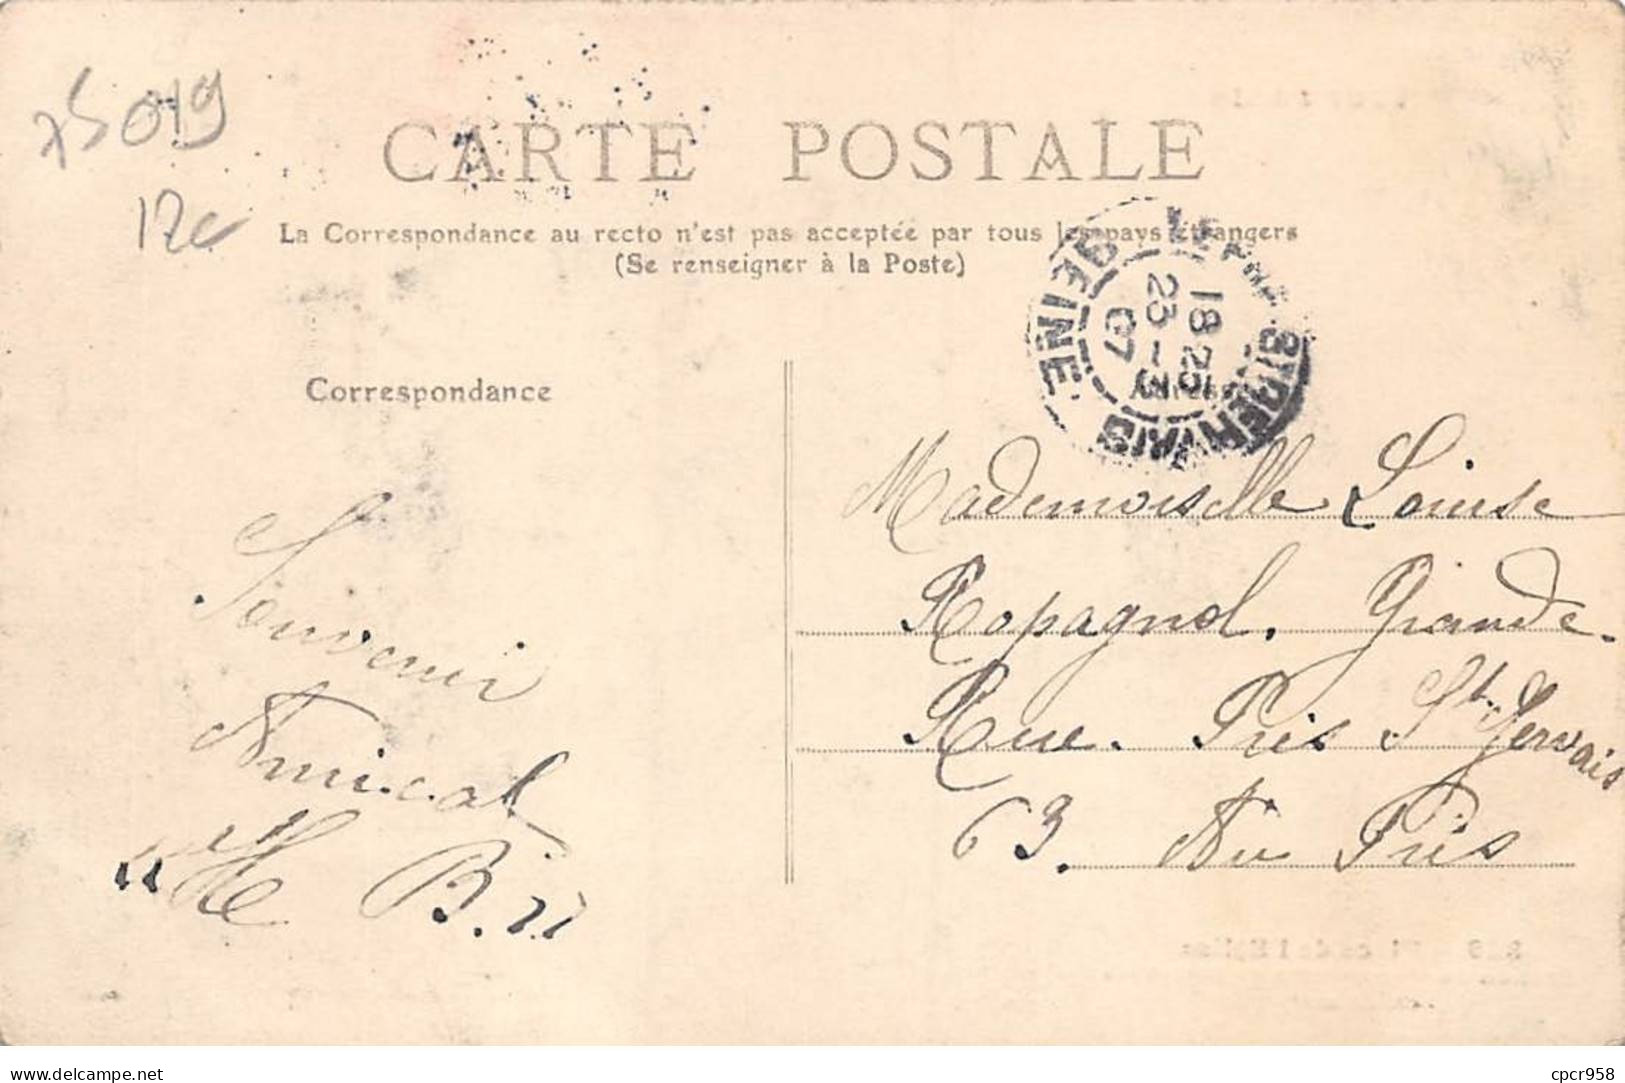 75019
12c
CARTE POSTALE
La Correspondance au recto n'est pas acceptée par tous les pays étrangers
(Se renseigner à la Poste)
SEINE
18 25
23 - 3
07
Correspondance
Mademoiselle Louise
Ropagnol. Grande.
Rue. Prés St. Gervais
63. Au Prés
Souvenir
Amical
"He B."
cpcr958